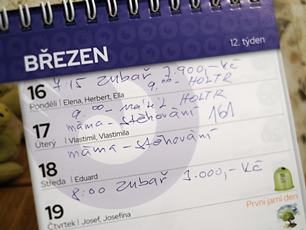 BŘEZEN
12. týden
7:15 zubař 7.900,-Kč
16
9,00 - HOLTR
Pondělí Elena, Herbert, Ella
9,00 - HOLTR
17
máma - stěhování 161
Úterý Vlastimil, Vlastimila
máma - stěhování
18
Středa Eduard
8:00 zubař 3.000,-Kč
19
První jarní den
Čtvrtek Josef, Josefína